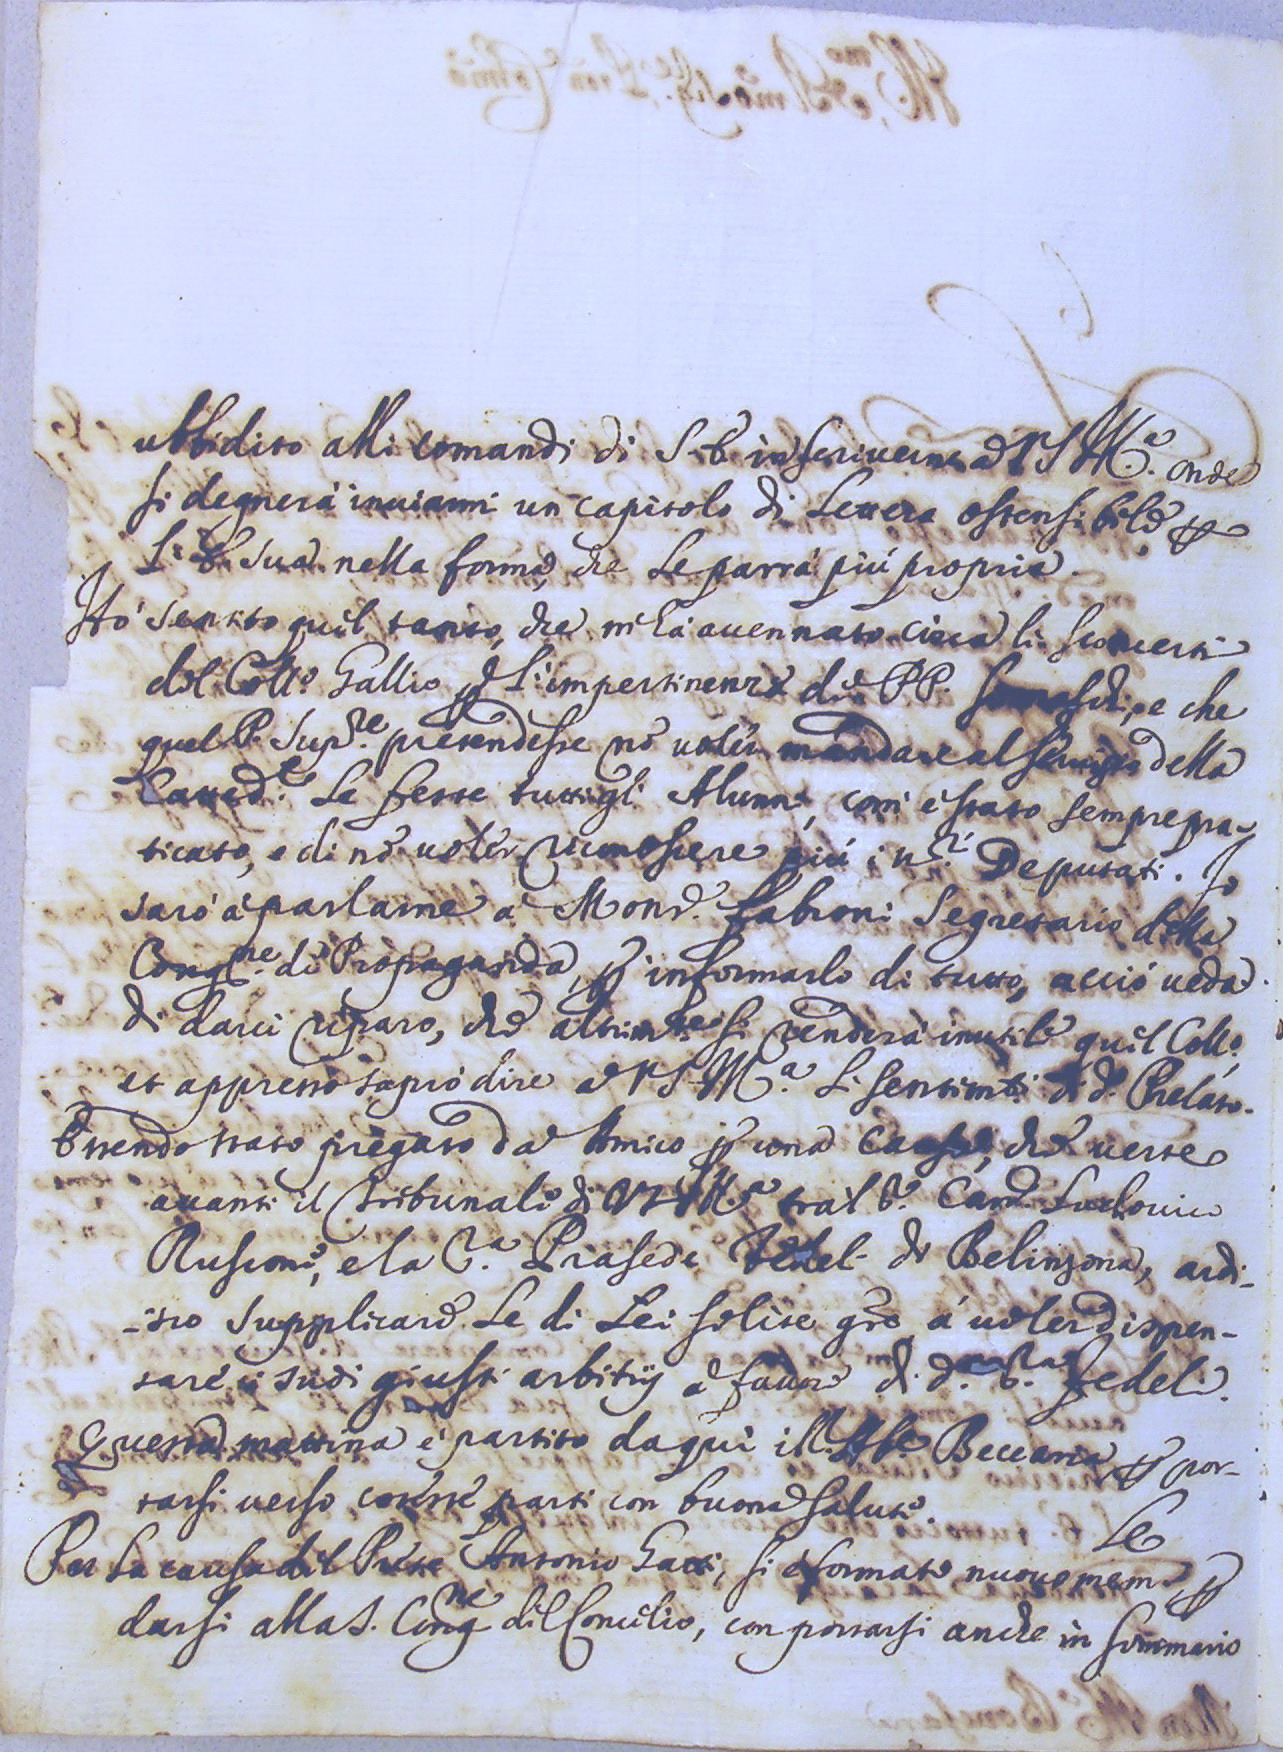 ubbidito alli comandi di S. B. in scriverne a VS Ill.ma onde
si degnerà inviarmi un capitolo di Lettera ostensibile p
S. B. Sua nella forma, che Le parrà più propria.
Hò sentito quel tanto, che m'hà avennato circa li sconcerti
del Coll.o Gallio p l'impertinenze de PP. e che
quel P. Sup.re pretendesse nō voler mandare al servigio della
Catted.e Le feste tutti gl'Alunni, com'è stato sempre pra-
ticato, e di nō voler riconoscere più i n.ri Deputati. Io
sarò à parlarne à Mons.r Fabroni Segretario della
Cong.ne di Propaganda, p informarlo di tutto, acciò veda
di darci riparo, che altrim.te si renderà inutile quel Coll.o
et appresso saprò dire a VS Ill.ma Li sentim.ti di d.o Prelato.
Essendo stato pregato da Amico p una Causa, che verte
avanti il Tribunale di VS Ill.ma tra'l S.r Cand. Lodovico
Rusconi, e la S.ra Prasede Fedel di Belinzona, ardi-
-sco supplicare Le di Lei solite gr̄e à voler dispen-
sare i suoi giusti arbitrij à favore di d.a S.ra Fedeli.
Questa mattina è partito da quì il S. Ab.e Beccaria p por-
tarsi verso coteste parti con buona salute.
Le
Per la causa del Prete Antonio Gatti, si è formato nuovo mem.le p
darsi alla S. Cong.ne del Concilio, con portarsi anche in sommario